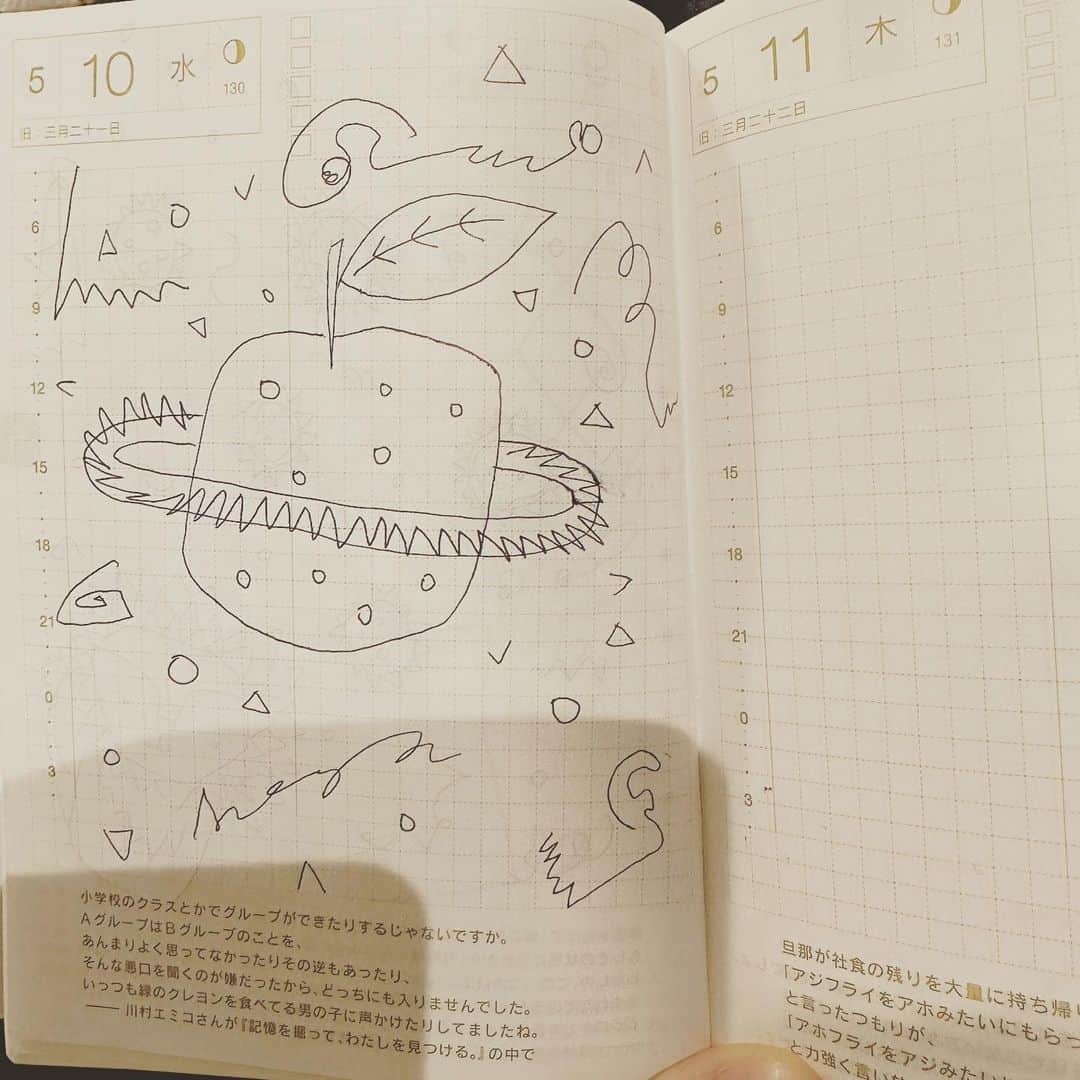 5 10 水
130
旧:三月二十一日
6
9
12
15
18
21
0
3
小学校のクラスとかでグループができたりするじゃないですか。
AグループはBグループのことを、
あんまりよく思ってなかったりその逆もあったり、
そんな悪口を聞くのが嫌だったから、どっちにも入りませんでした。
いっつも緑のクレヨンを食べてる男の子に声かけたりしてましたね。
── 川村エミコさんが『記憶を掘って、わたしを見つける。』の中で
5 11 木
131
旧:三月二十二日
6
9
12
15
18
21
0
3
旦那が社食の残りを大量に持ち帰り
「アジフライをアホみたいにもらっ
と言ったつもりが、
「アホフライをアジみたいに
と力強く言い